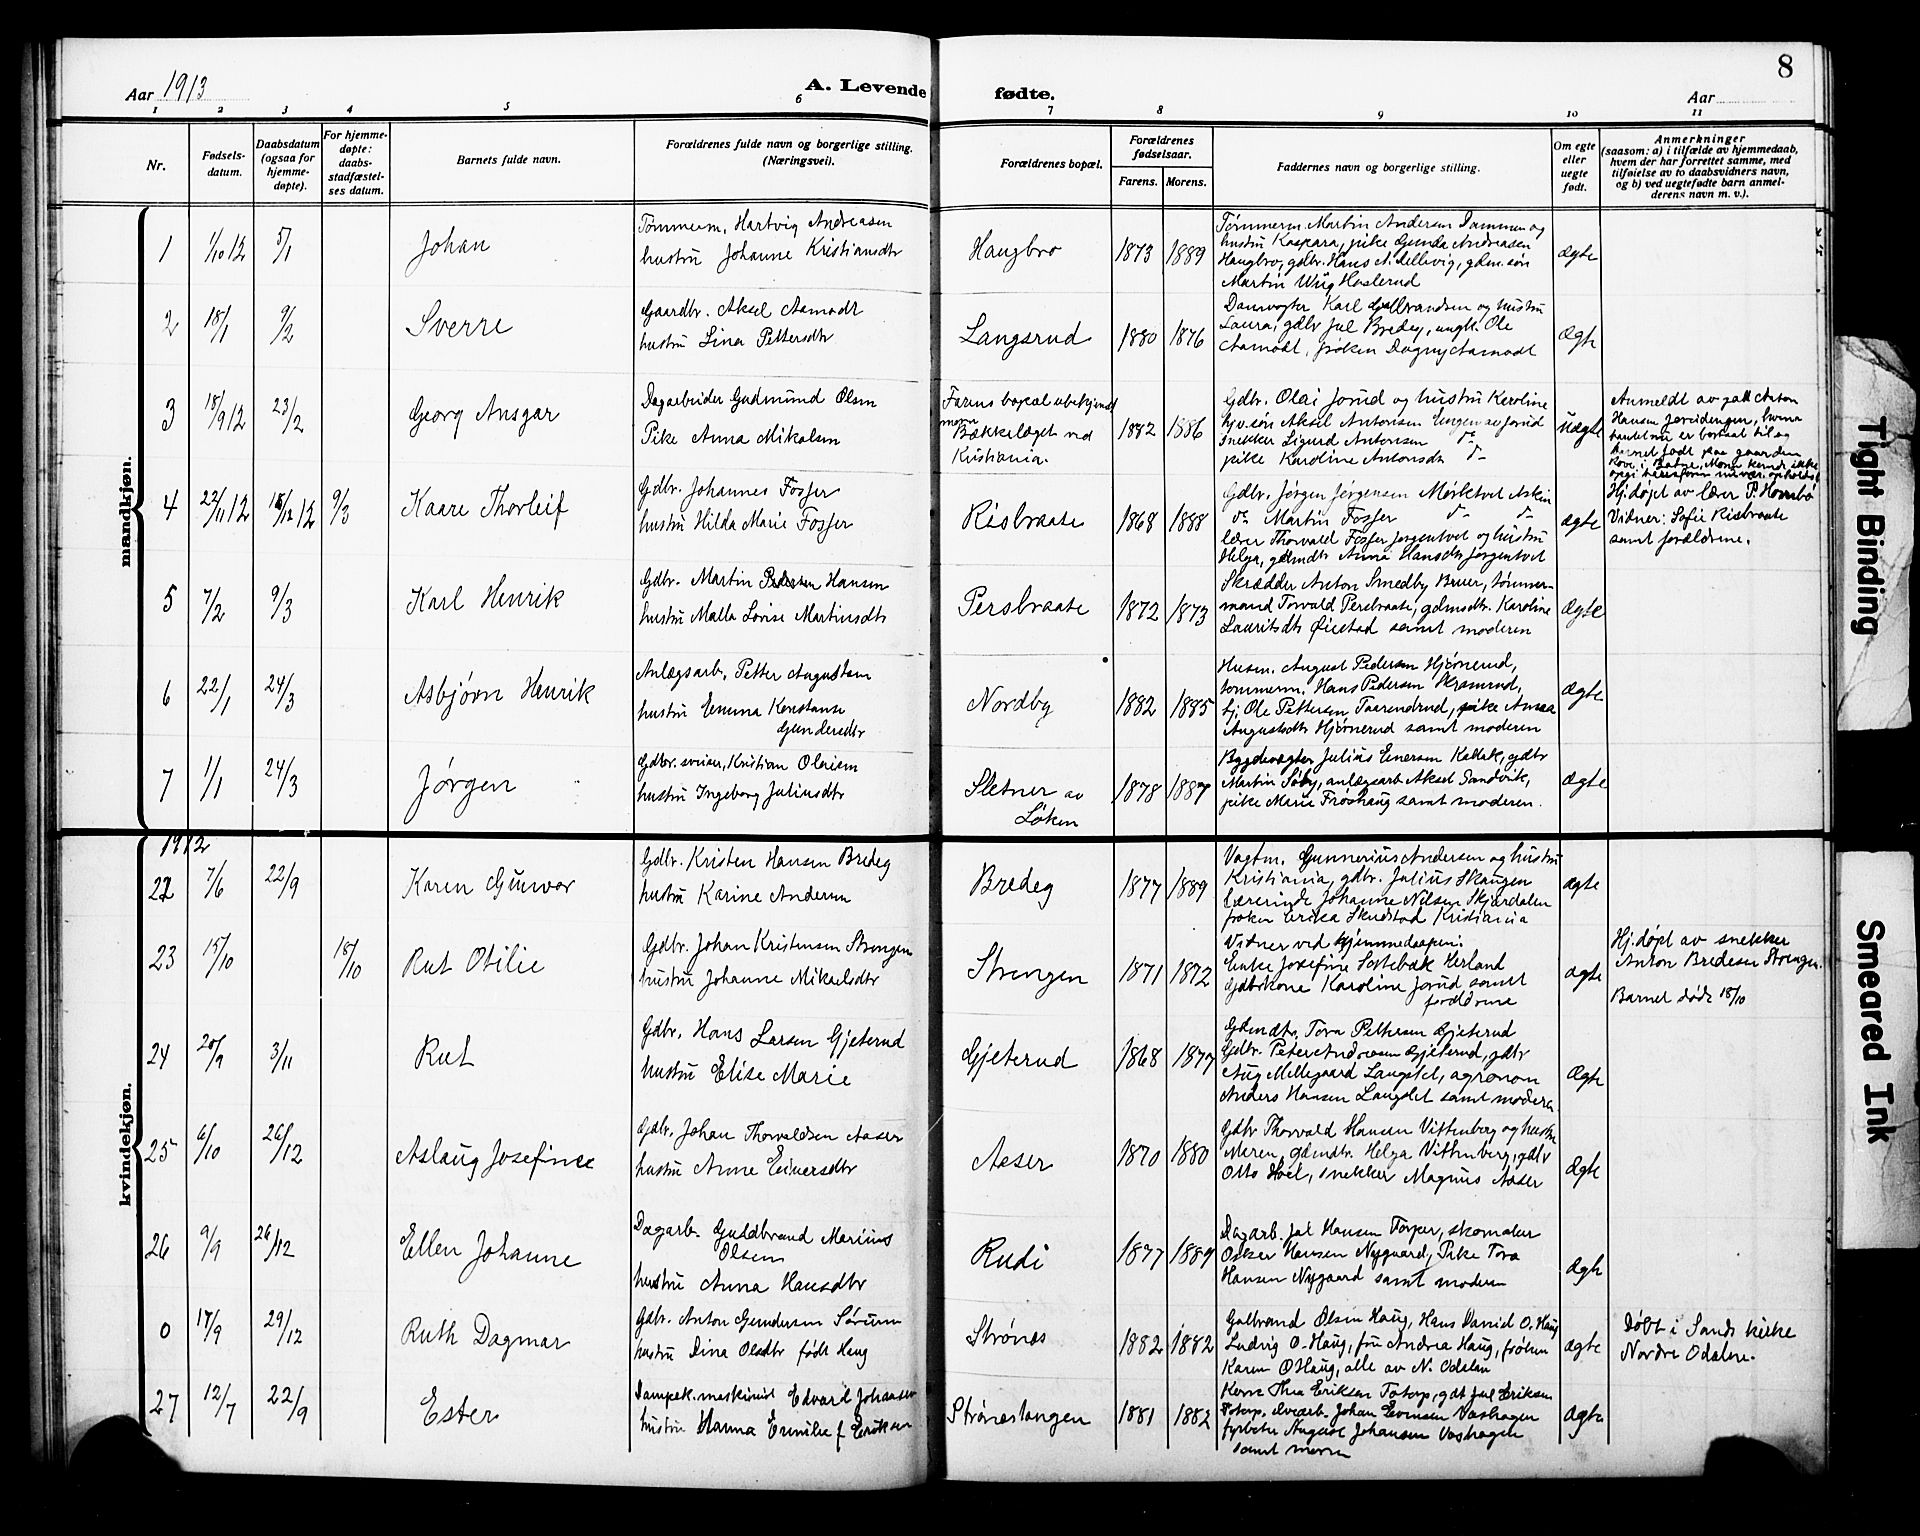 Aar 1913
A. Levende
fødte.
Aar
8
1 2 3 4 5 6 7 8 9 10 11
Nr.
Fødsels-
datum.
Daabsdatum
(ogsaa for
hjemme-
døpte).
For hjemme-
døpte:
daabs-
stadfæstel-
ses datum.
Barnets fulde navn.
Forældrenes fulde navn og borgerlige stilling.
(Næringsvei).
Forældrenes bopæl.
Forældrenes
fødselsaar.
Farens. Morens.
Faddernes navn og borgerlige stilling.
Om egte
eller
uegte
født.
Anmerkninger
(saasom: a) i tilfælde av hjemmedaab,
hvem der har forrettet samme, med
tilføielse av to daabsvidners navn,
og b) ved uegtefødte barn anmel-
derens navn m. v.).
mandkjøn.
1 1/10 12 5/1 Johan
Tømmerm. Hartvig Andreasen
hustru Johanne Kristiansdtr
Haugbro 1873 1889
Tømmerm. Martin Andersen Dammen og
hustru Kaspara, pike Gunda Andreasen
Haugbro, gdbr. Hans A. Ellevig, gdm.søn
Martin Wiig Haslerud
ægte
2 18/1 9/2 Sverre
Gaardbr. Aksel Aamodt
hustru Lina Pettersdtr
Langsrud 1880 1876
Damvogter Karl Gulbrandsen og hustru
Laura, gdbr Jul Bredeg, ungk. Ole
Aamodt, frøken Dagny Aamodt
ægte
3 18/9 12 23/2 Georg Ansgar
Dagarbeider Gudmund Olsen
Pike Anna Mikalsen
Farens bopæl ubekjendt
moren
Bækkelaget ved
Kristiania.
1882 1886
Gdbr. Olai Jorud og hustru Karoline
hjv.søn Aksel Antonsen Engen av Jorud
snekker Sigurd Antonsen do
pike Karoline Antonsdtr do
uægte
Anmeldt av
Hansen
er bortsat til og
barnet født paa gaarden
4 22/11 12 15/12 12 9/3 Kaare Thorleif
Gdbr. Johannes Fosser
hustru Hilda Marie Fosser
Risbraate 1868 1888
Gdbr. Jørgen Jørgensen Mørktvet Askim
do Martin Fosser do do
lærer Thorvald Fosser Jørgentvet og hustru
Helga, gdmdtr Anna Hansdtr Jørgentvet
ægte
Hj.døpt av lærer P. Hornsbø
Vidner: Sofie Risbraate
samt forældrene.
5 7/2 9/3 Karl Henrik
Gdbr. Martin Hansen
hustru Malla Lovise Martinsdtr
Persbraate 1872 1873
Skrædder Anton Smedby Bruer, tømmer-
mand Torvald Persbraate, gdmsdtr. Karoline
Lauritsdtr Øiestad samt moderen
ægte
6 22/1 24/3 Asbjørn Henrik
Anlægsarb. Petter Augustsen
hustru Emma Konstanse
Gundersdtr
Nordby 1882 1885
Husm. August Pedersen Hjørnerud,
tømmerm. Hans Pedersen
hj. Ole Pettersen Taarendrud, pike Anna
Augustsdtr Hjørnerud samt moderen
ægte
7 1/1 24/3 Jørgen
Gdbr. sveiser, Kristian Olaisen
hustru Ingeborg Juliusdtr
Sletner av
Løken
1878 1887
Bygdevægter Julius Enersen Kallak, gdbr
Martin Søby, anlægsarb Aksel Sandvik,
pike Marie Frøshaug samt moderen.
ægte
kvindekjøn.
1912
22 7/6 22/9 Karen Gunvor
Gdbr. Kristen Hansen Bredeg
hustru Karine Andersen
Bredeg 1877 1889
Vagtm. Gunnerius Andersen og hustru
Kristiania, gdbr. Julius Skaugen
lærerinde Johanne Nilsen Skjærdalen
frøken Erika Skudstad Kristiania
ægte
23 15/10 18/10 Rut Otilie
Gdbr. Johan Kristensen Strengen
hustru Johanne Mikaelsdtr
Strengen 1871 1872
Vidner ved hjemmedaapen:
Enke Josefine Sætebæk Herland
Gdbrkone Karoline Jorud samt
forældrene
ægte
Hj.døpt av snekker
Anton Bredesen Strengen.
Barnet døde 18/10
24 20/9 3/11 Rut
Gdbr. Hans Larsen Gjeterud
hustru Elise Marie
Gjeterud 1868 1877
Gdmdtr. Tora Pettersen Gjeterud
Gdbr. Peter Andreasen Gjeterud, gdbr
Aug Mellegaard Langstet, agronom
Anders Hansen Langslet samt moderen
ægte
25 6/10 26/12 Aslaug Josefine
Gdbr. Johan Thorvaldsen Aaser
hustru Anne Einersdtr
Aaser 1870 1880
Gdbr Thorvald Hansen Vittenberg og hustru
Maren, gdmdtr. Helga Vittenberg, gdbr
Otto Hoel, snekker Magnus Aaser
ægte
26 9/9 26/12 Ellen Johanne
Dagarb. Guldbrand Marius
Olsen
hustru Anna Hansdtr
Rudi 1877 1889
Dagarb. Jul Hansen Torper, skomaker
Oskar Hansen Nygaard, Pike Tora
Hansen Nygaard samt moderen
ægte
0 17/9 29/12 Ruth Dagmar
Gdbr. Anton Gundersen Sørum
hustru Dina Olsdtr født Haug
Strønes 1882 1882
Gulbrand Olsen Haug, Hans David O. Haug
Ludvig O. Haug, fru Andrea Haug, frøken
Karen O Haug, alle av N. Odalen
ægte
Døbt i Sands kirke
Nordre Odalen.
27 12/7 22/9 Ester
Dampsk. maskinist Edvard Johansen
hustru Hanna Emilie f Eriksen
Strønestangen 1881 1882
Kone Thea Eriksen Totorp, gdbr Jul Eriksen
Totorp, elvearb. Johan Evensen Vashagen
fyrbøter August Johansen Vashagen
samt moren
ægte
Tight Binding
Smeared Ink